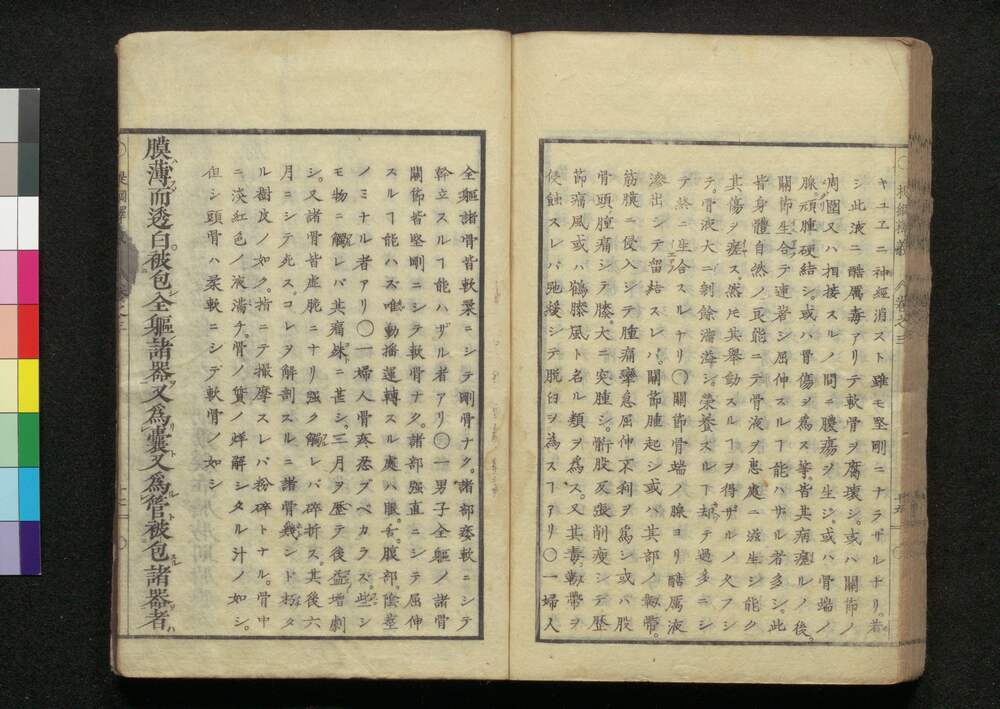 キユヱニ神經消スト雖モ堅剛ニナラザルナリ。若
シ此液ニ酷厲毒アリテ軟骨ヲ腐壞シ。或ハ關節ノ
周圍又ハ相接スルノ間ニ膿瘍ヲ生ジ。或ハ骨端ノ
腺頑腫硬結シ。或ハ骨傷ヲ爲ス等。皆其病瘥ルノ後。
關節生合テ連著シ屈伸スルヿ能ハザル者多シ。此
皆身體自然ノ良能ニテ骨液ヲ患處ニ滋生シ能ク
其傷ヲ瘥ス。然ㇺ其擧動スルヿヲ得ザルノ久フシ
テ。骨液大ニ剰餘溢シ。榮養スルヿ却テ過多ニシ
テ終ニ生合スルナリ〇關節骨端ノ腺ヨリ酷厲液
滲出シテ留結スレバ。關節腫起シ或ハ其部ノ
筋膜ニ侵入シテ腫痛攣急屈伸不利ヲ爲シ或ハ股
骨頭腫痛シテ膝大ニ突腫シ。骭股反張削瘦シテ歷
節痛風或ハ鶴膝風ト名ル類ヲ爲ス。又其毒ヲ
侵蝕スレバ弛緩シテ脱臼ヲ爲スヿアリ〇一婦人
全軀諸骨皆軟柔ニシテ剛骨ナク。諸部痿軟ニシテ
幹立スルヿ能ハザル者アリ〇一男子全軀ノ諸骨
關節皆堅剛ニシテ軟骨ナク。諸部强直ニシテ屈伸
スルヿ能ハズ。唯動搖運轉スル處ハ眼。舌。腹部。陰莖
ノミナル者アリ〇一婦人骨疼忍ブベカラズ些シ
モ物ニ觸レバ其痛殊ニ甚シ。三月ヲ歷テ後盆増劇
シ。又諸骨皆虛脆ニナリ强ク觸レバ碎折ス。其後六
月ニシテ死ス。コレヲ解剖スルニ諸骨幾ンド朽タ
ル樹皮ノ如ク。指ニテ撮摩スレバ粉碎トナル。骨中
ニ淡紅色ノ液滿チ。骨ノ質ノ烊解シタル汁ノ如シ。
但シ頭骨ハ柔軟ニシテ軟骨ノ如シ
膜薄而透白被包全軀諸器又爲囊又爲管被包諸器者